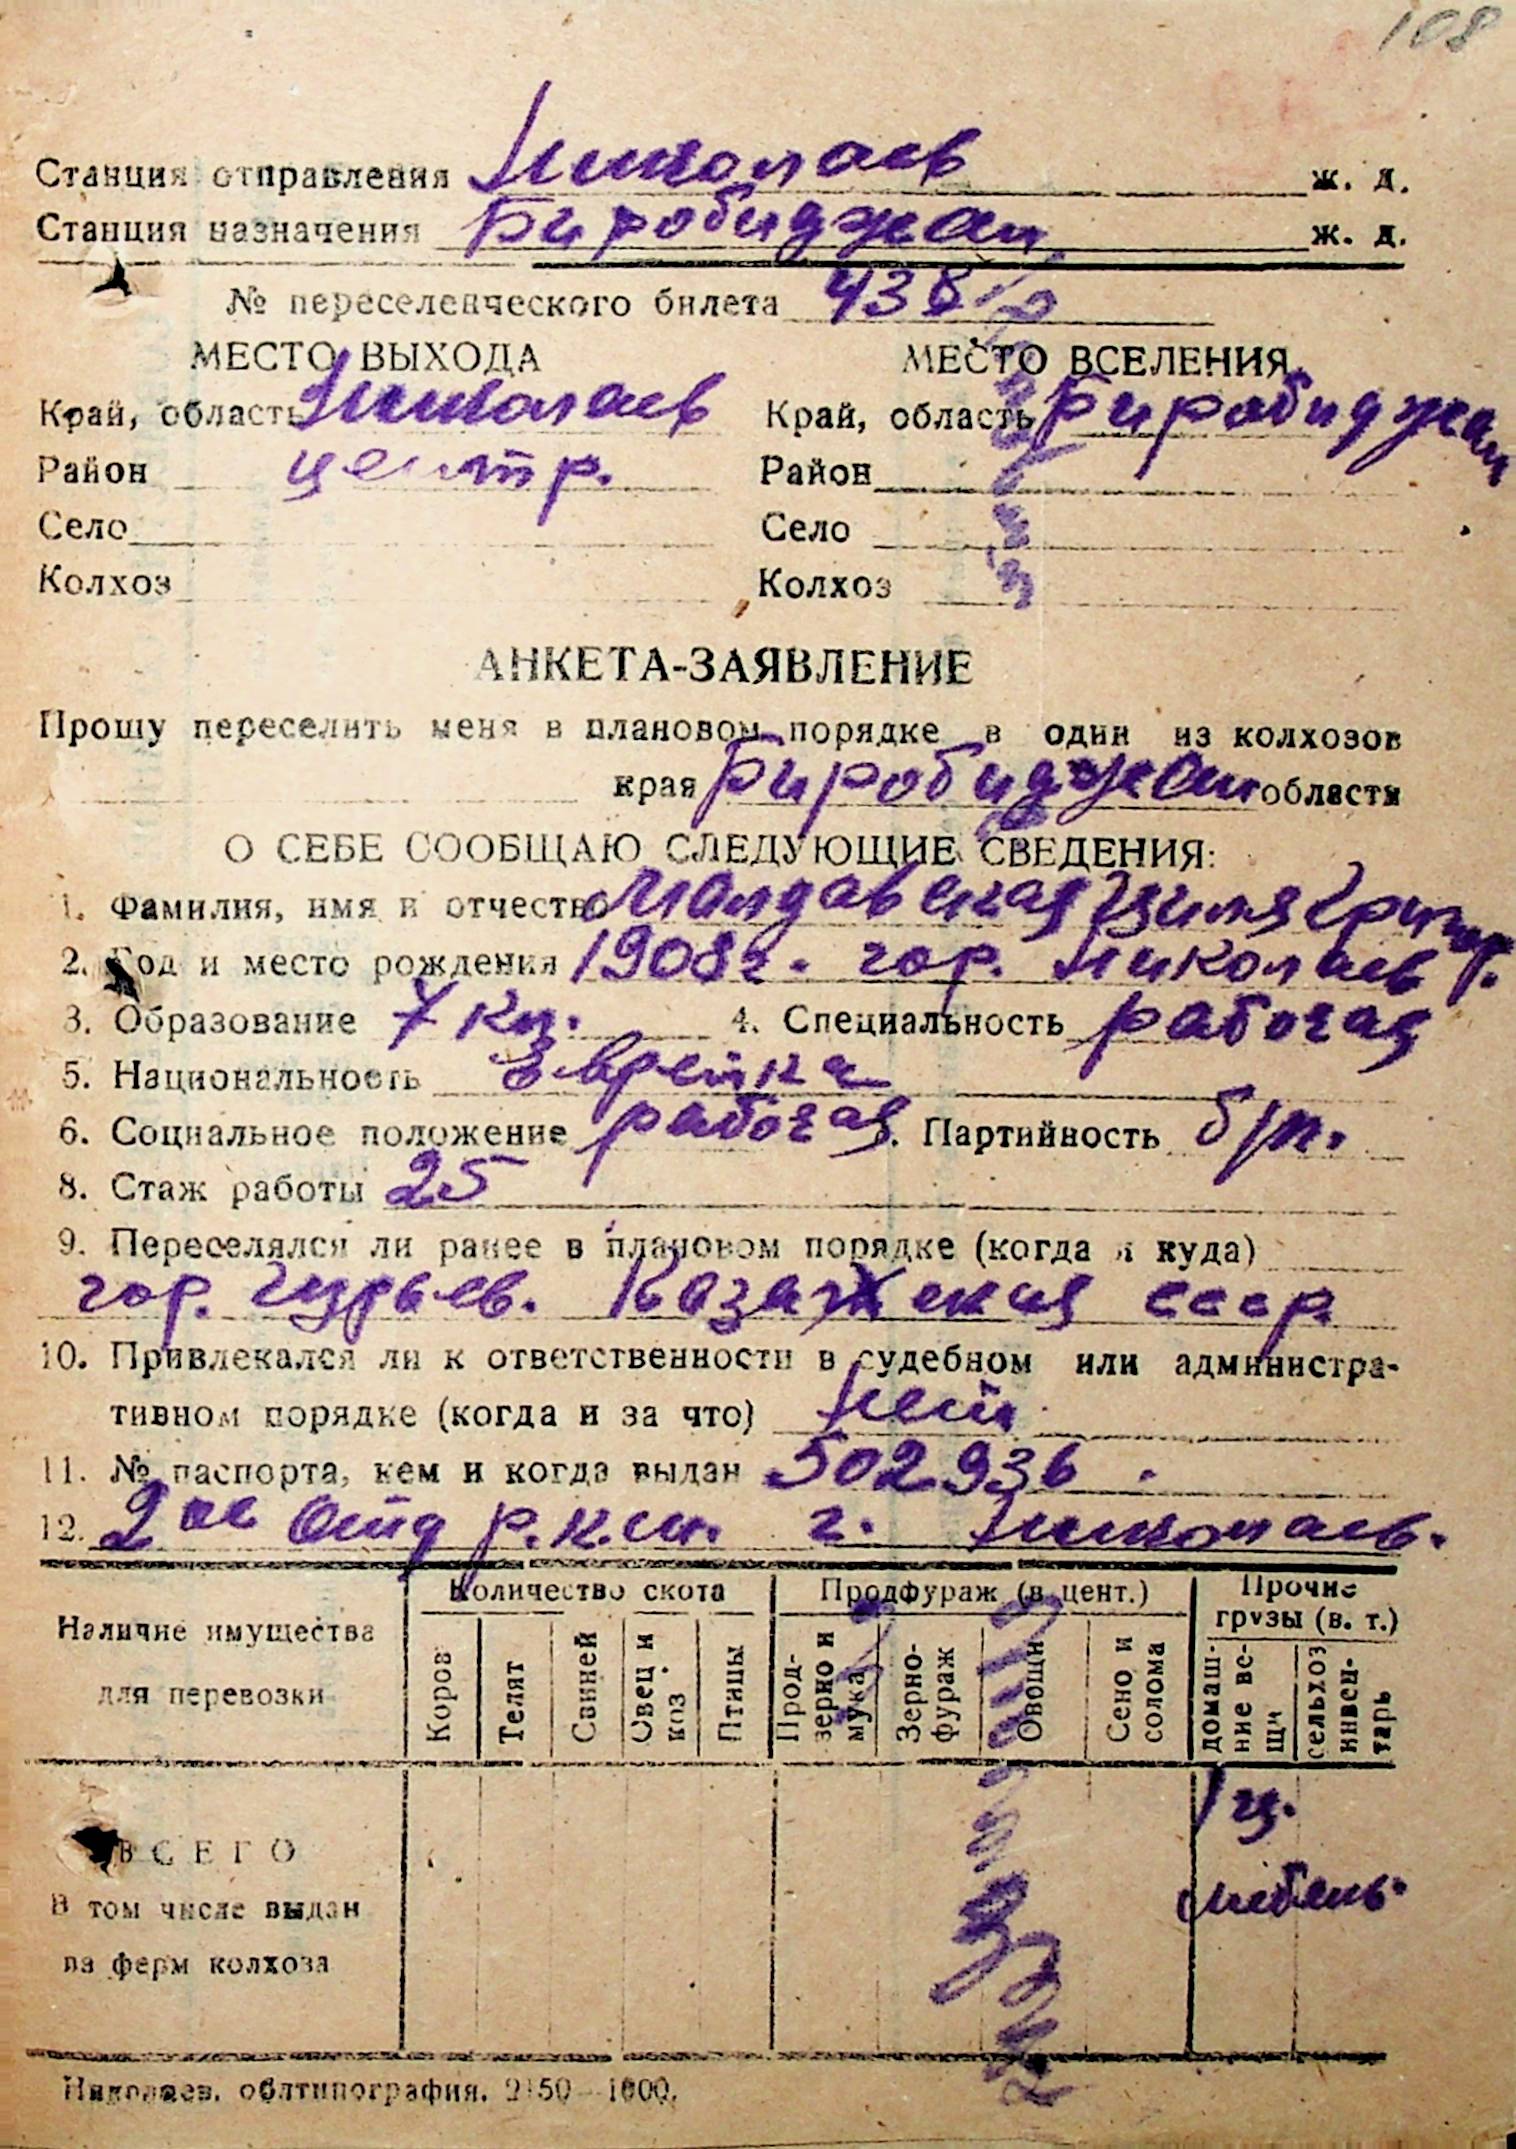 108
Станция отправления Николаев ж. д.
Станция назначения Биробиджан ж. д.
№ переселенческого билета 438
МЕСТО ВЫХОДА МЕСТО ВСЕЛЕНИЯ
Край, область Николаев Край, область Биробиджан
Район центр. Район
Село Село
Колхоз Колхоз
АНКЕТА-ЗАЯВЛЕНИЕ
Прошу переселить меня в плановом порядке в один из колхозов
края Биробиджан области
О СЕБЕ СООБЩАЮ СЛЕДУЮЩИЕ СВЕДЕНИЯ:
1. Фамилия, имя и отчество Малдавская Циля Григор.
2. Год и место рождения 1908 г. гор. Николаев
3. Образование 7 кл. 4. Специальность рабочая
5. Национальность Еврейка
6. Социальное положение рабочая . Партийность б/п.
8. Стаж работы 25
9. Переселялся ли ранее в плановом порядке (когда и куда)
гор. Гурьев. Казахская СССР.
10. Привлекался ли к ответственности в судебном или администра-
тивном порядке (когда и за что) нет
11. № паспорта, кем и когда выдан 502936.
12. 2ое Отд р.к.м. г. Николаев.
Наличие имущества для перевозки Количество скота Продфураж (в цент.) Прочие грузы (в. т.)
Коров Телят Свиней Овец и коз Птицы Прод-зерно и мука Зерно-фураж Овощи Сено и солома домаш-ние ве-щи сельхоз инвен-тарь
ВСЕГО 1 ц.
В том числе выдан мебель.
на ферм колхоза
Николаев. облтипография. 2 50—1000.